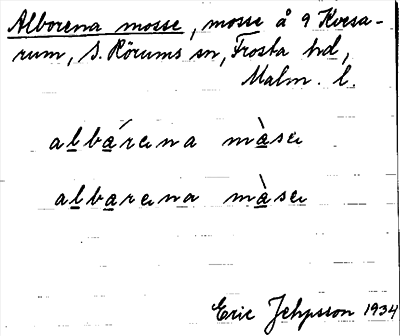 Alborena mosse, mosse å 9 Kvesa-
rum, S. Rörums sn, Frosta hd,
Malm. l.
albárena màsa
albarena màsa
Eric Jepsson 1934